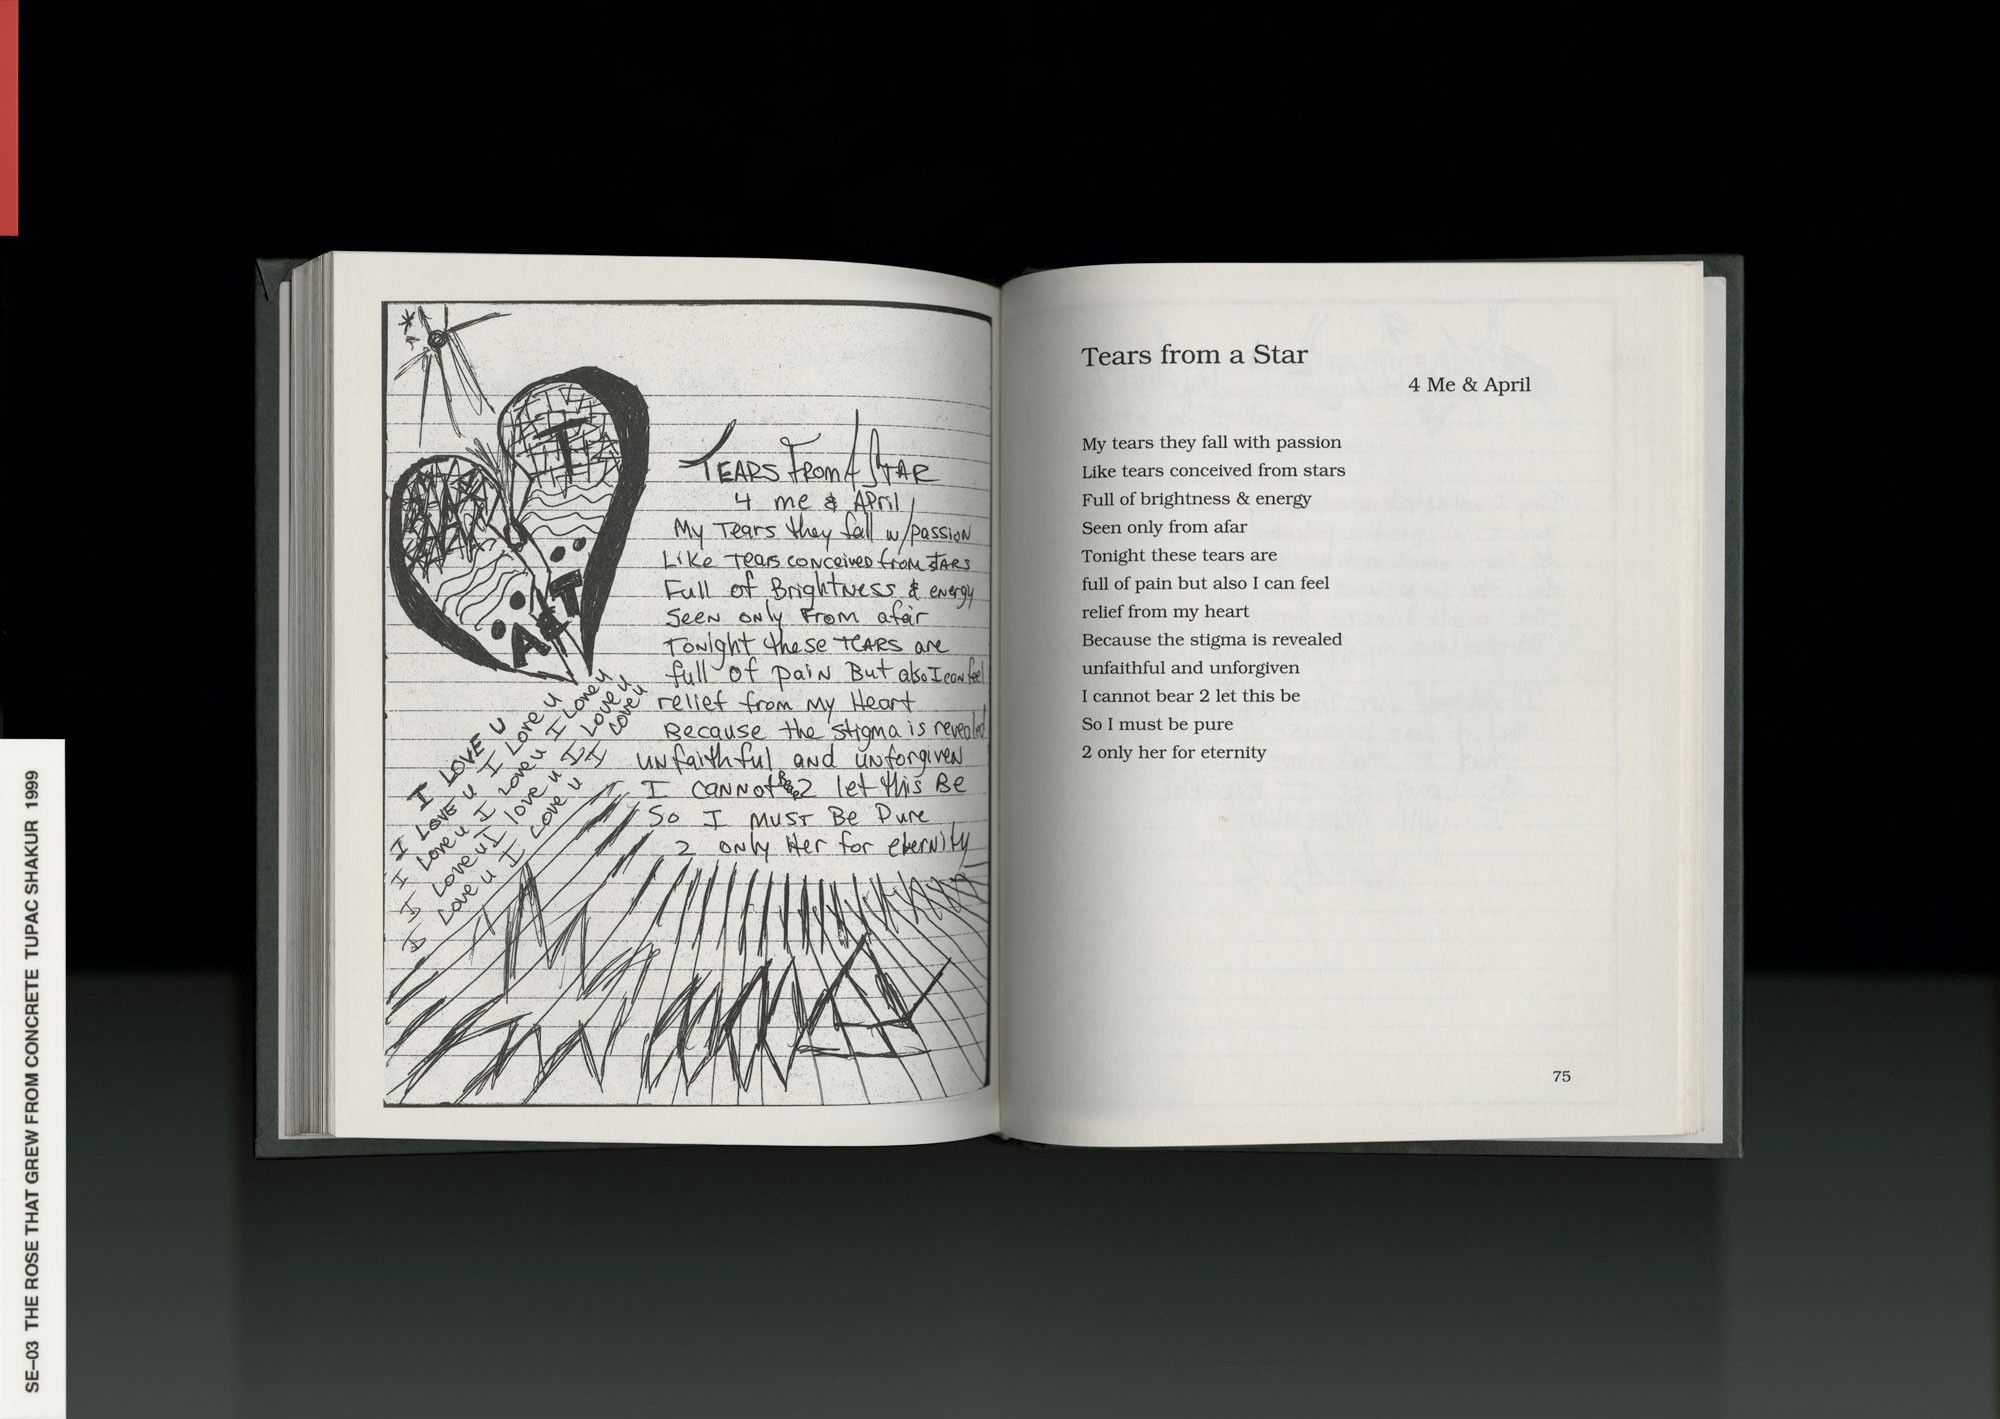 SE–03 THE ROSE THAT GREW FROM CONCRETE TUPAC SHAKUR 1999
T
A & T
I LOVE U
I LOVE U I Love u
I Love u I Love u I Love u
I Love u I love u I Love u
I Love u I Love u I Love u
TEARS From A STAR
4 me & April
My Tears they fall w/passion
Like Tears conceived from STARS
Full of Brightness & energy
Seen only From afar
Tonight these TEARS are
full of pain But also I can feel
relief from my Heart
Because the stigma is revealed
unfaithful and unforgiven
I cannot Bear 2 let this Be
So I must Be Pure
2 only Her for eternity
Tears from a Star
4 Me & April
My tears they fall with passion
Like tears conceived from stars
Full of brightness & energy
Seen only from afar
Tonight these tears are
full of pain but also I can feel
relief from my heart
Because the stigma is revealed
unfaithful and unforgiven
I cannot bear 2 let this be
So I must be pure
2 only her for eternity
75